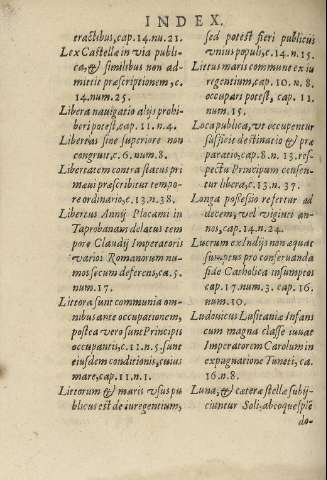 INDEX.
tractibus, cap. 14. nu. 21.
Lex Castellæ in via publi-
ca, & similibus non ad-
mittit præscriptionem, c.
14. num. 25.
Libera nauigatio alijs prohi-
beri potest, cap. 11. n. 4.
Libertas sine superiore non
congruit, c. 6. num. 8.
Libertatem contra status pri-
mæus præscribitur tempo-
re ordinario, c. 13. n. 38.
Libertus Annij Plocami in
Taprobanam delatus tem
pore Claudij Imperatoris
varios Romanorum nu-
mos secum deferens, ca. 5.
num. 17.
Littora sunt communia om-
nibus ante occupationem,
postea vero sunt Principis
occupantis, c. 11. n. 5. sunt
eiusdem conditionis, cuius
mare, cap. 11. n. 1.
Littorum & maris vsus pu
blicus est de iure gentium,
sed potest fieri publicus
vnius populi, c. 14. n. 15.
Littus maris commune ex iu
re gentium, cap. 10. n. 8.
occupari potest, cap. 11.
num. 15.
Loca publica, vt occupentur
sufficit destinatio & præ
paratio, cap. 8. n. 13. res-
pectu Principum censen-
tur libera, c. 13. n. 37.
Longa possessio refertur ad
decem, vel viginti an-
nos, cap. 14. n. 24.
Lucrum ex Indijs non æquat
sumptus pro conseruanda
fide Catholica insumptos
cap. 17. num. 3. cap. 16.
num. 10.
Ludouicus Lusitaniæ Infans
cum magna classe iuuat
Imperatorem Carolum in
expugnatione Tuneti, ca.
16. n. 8.
Luna, & cæteræ stellæ subij-
ciuntur Soli, absque splē
do-